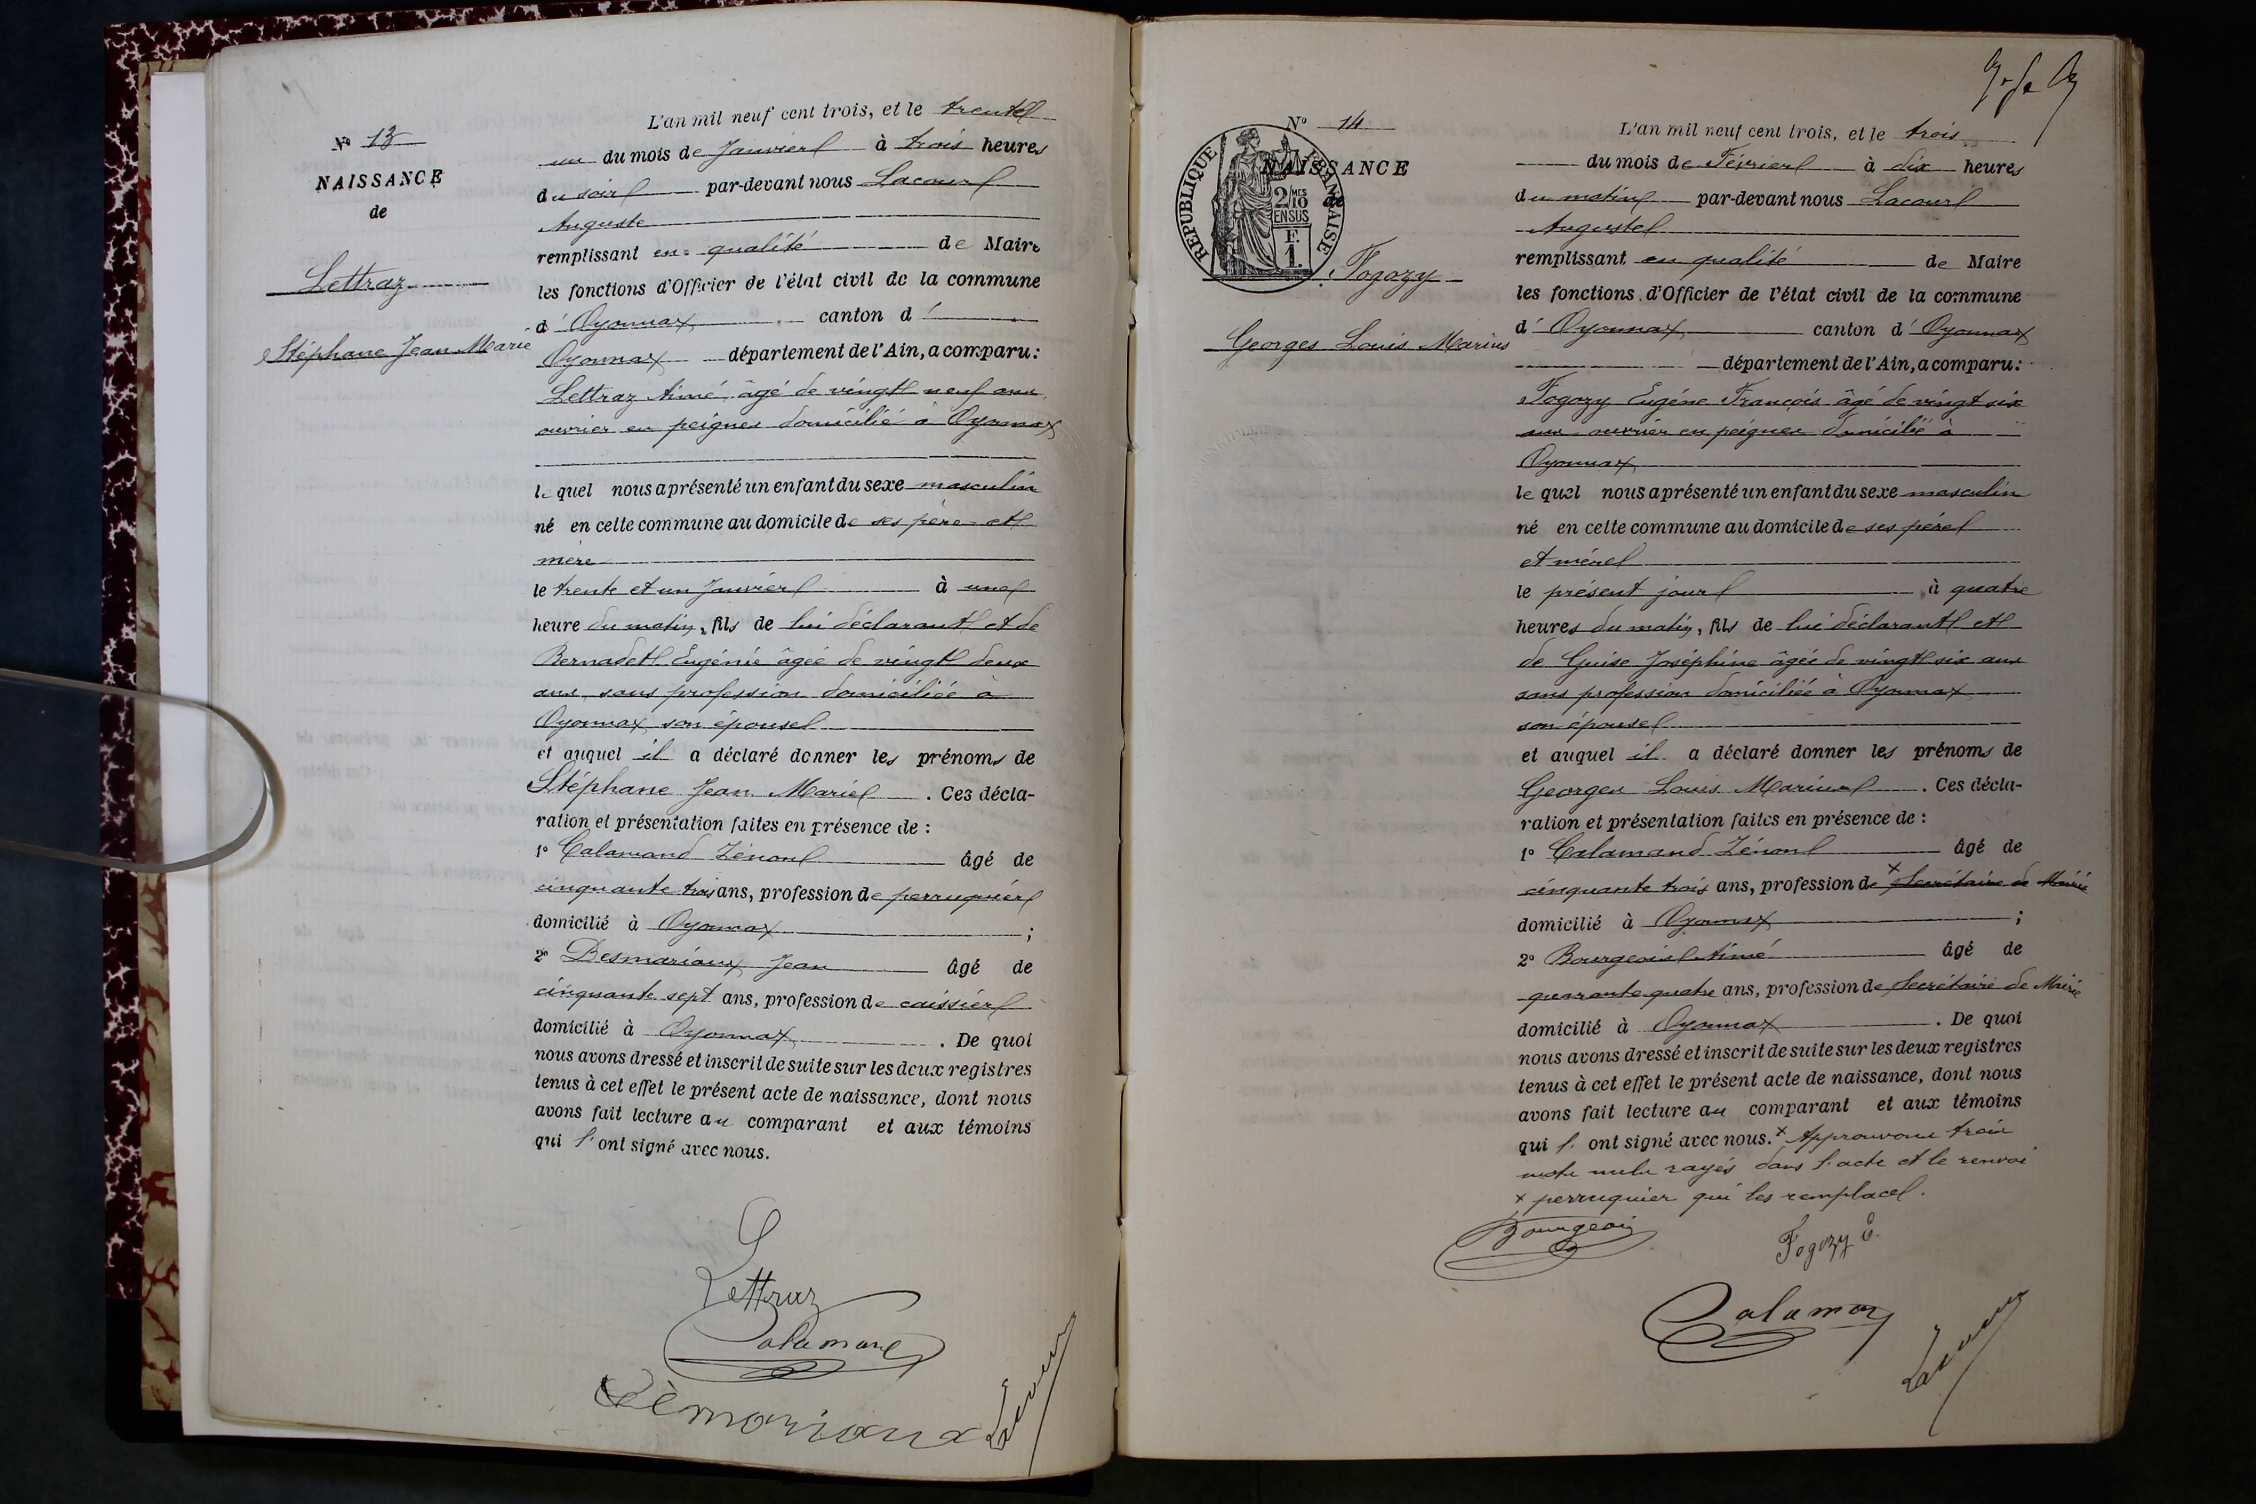 N° 13
NAISSANCE
de
Lettraz
Stéphane Jean Marie
L'an mil neuf cent trois, et le trente
un du mois de Janvier à trois heures
du soir par-devant nous Lacour
Auguste
remplissant en qualité de Maire
les fonctions d'Officier de l'état civil de la commune
d' Oyonnax canton d'
Oyonnax département de l'Ain, a comparu :
Lettraz Aimé, âgé de vingt neuf ans
ouvrier en peignes domicilié à Oyonnax
le quel nous a présenté un enfant du sexe masculin
né en cette commune au domicile de ses père et
mère
le trente et un Janvier à une
heure du matin, fils de lui déclarant et de
Bernadet Eugénie âgée de vingt deux
ans, sans profession domiciliée à
Oyonnax son épouse
et auquel il a déclaré donner les prénoms de
Stéphane Jean Marie . Ces décla-
ration et présentation faites en présence de :
1° Calamand Zénon âgé de
cinquante trois ans, profession de perruquier
domicilié à Oyonnax ;
2° Desmariaux Jean âgé de
cinquante sept ans, profession de caissier
domicilié à Oyonnax . De quoi
nous avons dressé et inscrit de suite sur les deux registres
tenus à cet effet le présent acte de naissance, dont nous
avons fait lecture au comparant et aux témoins
qui l'ont signé avec nous.
Lettraz
Calamand
Démoriaux
Lacour
N° 14
NAISSANCE
de
RÉPUBLIQUE FRANÇAISE
2/10 MES
EN SUS
F.
1.
Fogozy
Georges Louis Marius
L'an mil neuf cent trois, et le trois
du mois de Février à dix heures
du matin par-devant nous Lacour
Auguste
remplissant en qualité de Maire
les fonctions d'Officier de l'état civil de la commune
d' Oyonnax canton d' Oyonnax
département de l'Ain, a comparu :
Fogozy Eugène François âgé de vingt six
ans ouvrier en peignes domicilié à
Oyonnax
le quel nous a présenté un enfant du sexe masculin
né en cette commune au domicile de ses père
et mère
le présent jour à quatre
heures du matin, fils de lui déclarant et
de Guise Joséphine âgée de vingt six ans
sans profession domiciliée à Oyonnax
son épouse
et auquel il a déclaré donner les prénoms de
Georges Louis Marius . Ces décla-
ration et présentation faites en présence de :
1° Calamand Zénon âgé de
cinquante trois ans, profession de x Secrétaire de Mairie
domicilié à Oyonnax ;
2° Bourgeois Aimé âgé de
quarante quatre ans, profession de Secrétaire de Mairie
domicilié à Oyonnax . De quoi
nous avons dressé et inscrit de suite sur les deux registres
tenus à cet effet le présent acte de naissance, dont nous
avons fait lecture au comparant et aux témoins
qui l'ont signé avec nous. x Approuvons trois
mots nuls rayés dans l'acte et le renvoi
x perruquier qui les remplace.
Bourgeois
Fogozy E.
Calaman
Lacour